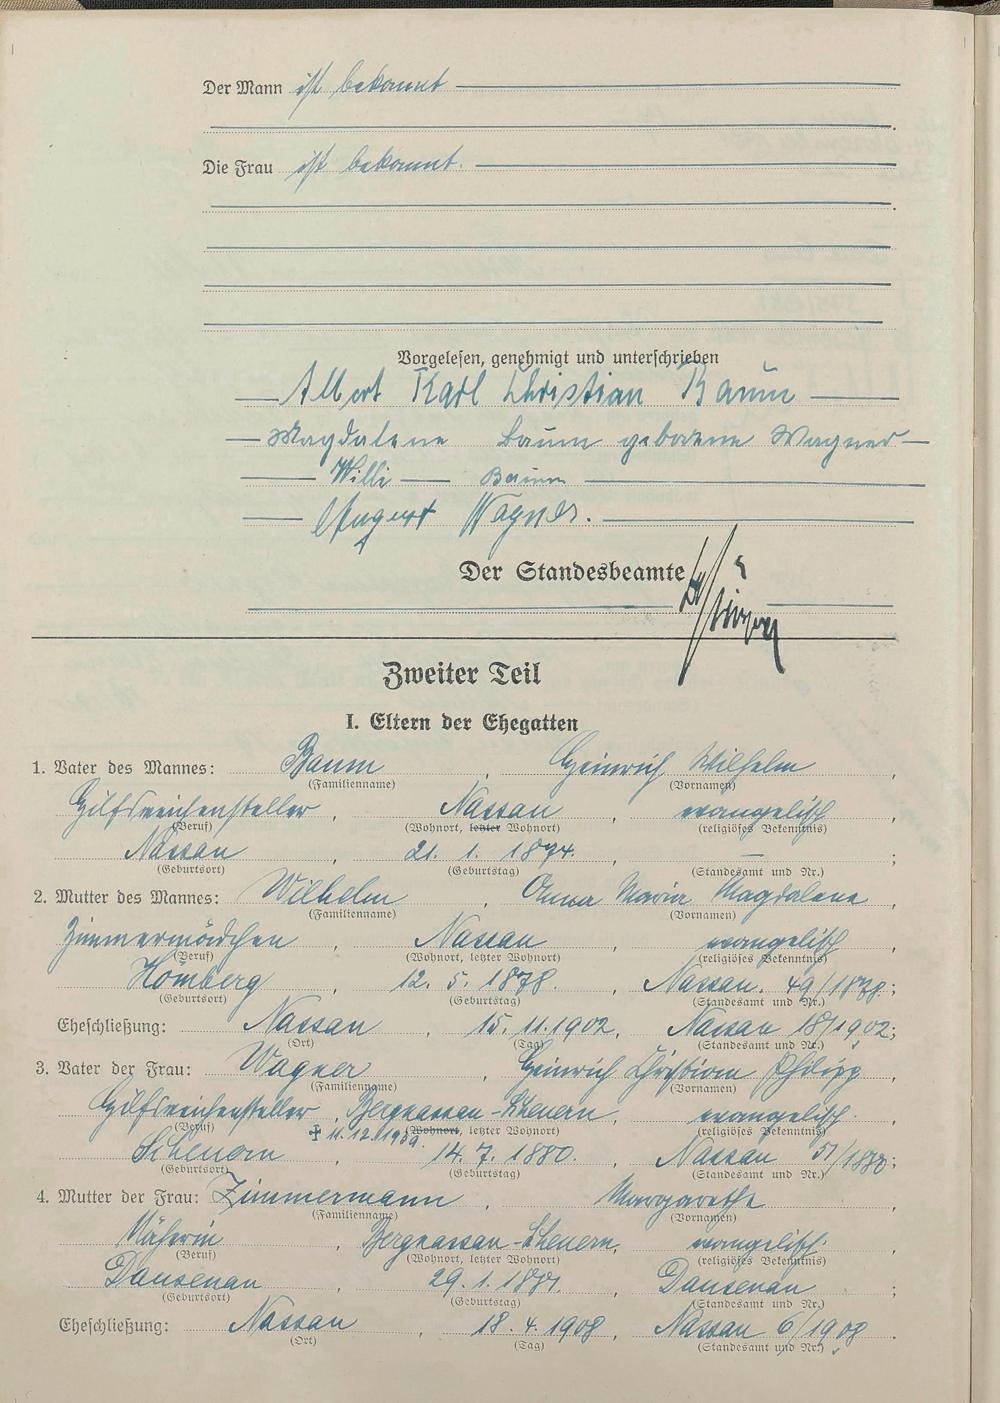 Der Mann ist bekannt
Die Frau ist bekannt.
Vorgelesen, genehmigt und unterschrieben
Albert Karl Christian Baum
Magdalene Baum geborene Wagner
Willi Baum
August Wagner.
Der Standesbeamte
Zweiter Teil
I. Eltern der Ehegatten
1. Vater des Mannes: Baum, Heinrich Wilhelm,
(Familienname) (Vornamen)
Hilfsweichensteller, Nassau, evangelisch,
(Beruf) (Wohnort, letzter Wohnort) (religiöses Bekenntnis)
Nassau, 21. 1. 1874. — ;
(Geburtsort) (Geburtstag) (Standesamt und Nr.)
2. Mutter des Mannes: Wilhelm, Anna Maria Magdalena,
(Familienname) (Vornamen)
Zimmermädchen, Nassau, evangelisch,
(Beruf) (Wohnort, letzter Wohnort) (religiöses Bekenntnis)
Hömberg, 12. 5. 1878. Nassau. 49/1878.;
(Geburtsort) (Geburtstag) (Standesamt und Nr.)
Eheschließung: Nassau, 15. 11. 1902, Nassau 18/1902;
(Ort) (Tag) (Standesamt und Nr.)
3. Vater der Frau: Wagner, Heinrich Christian Philipp,
(Familienname) (Vornamen)
Hilfsweichensteller, Bergnassau-Scheuern, evangelisch.
(Beruf) ✝ 11.12.1939. (Wohnort, letzter Wohnort) (religiöses Bekenntnis)
Scheuern, 14. 7. 1880. Nassau 51/1880;
(Geburtsort) (Geburtstag) (Standesamt und Nr.)
4. Mutter der Frau: Zimmermann, Margarethe,
(Familienname) (Vornamen)
Näherin, Bergnassau-Scheuern, evangelisch.
(Beruf) (Wohnort, letzter Wohnort) (religiöses Bekenntnis)
Dausenau, 29. 1. 1881. Dausenau;
(Geburtsort) (Geburtstag) (Standesamt und Nr.)
Eheschließung: Nassau, 18. 4. 1908, Nassau 6/1908.
(Ort) (Tag) (Standesamt und Nr.)